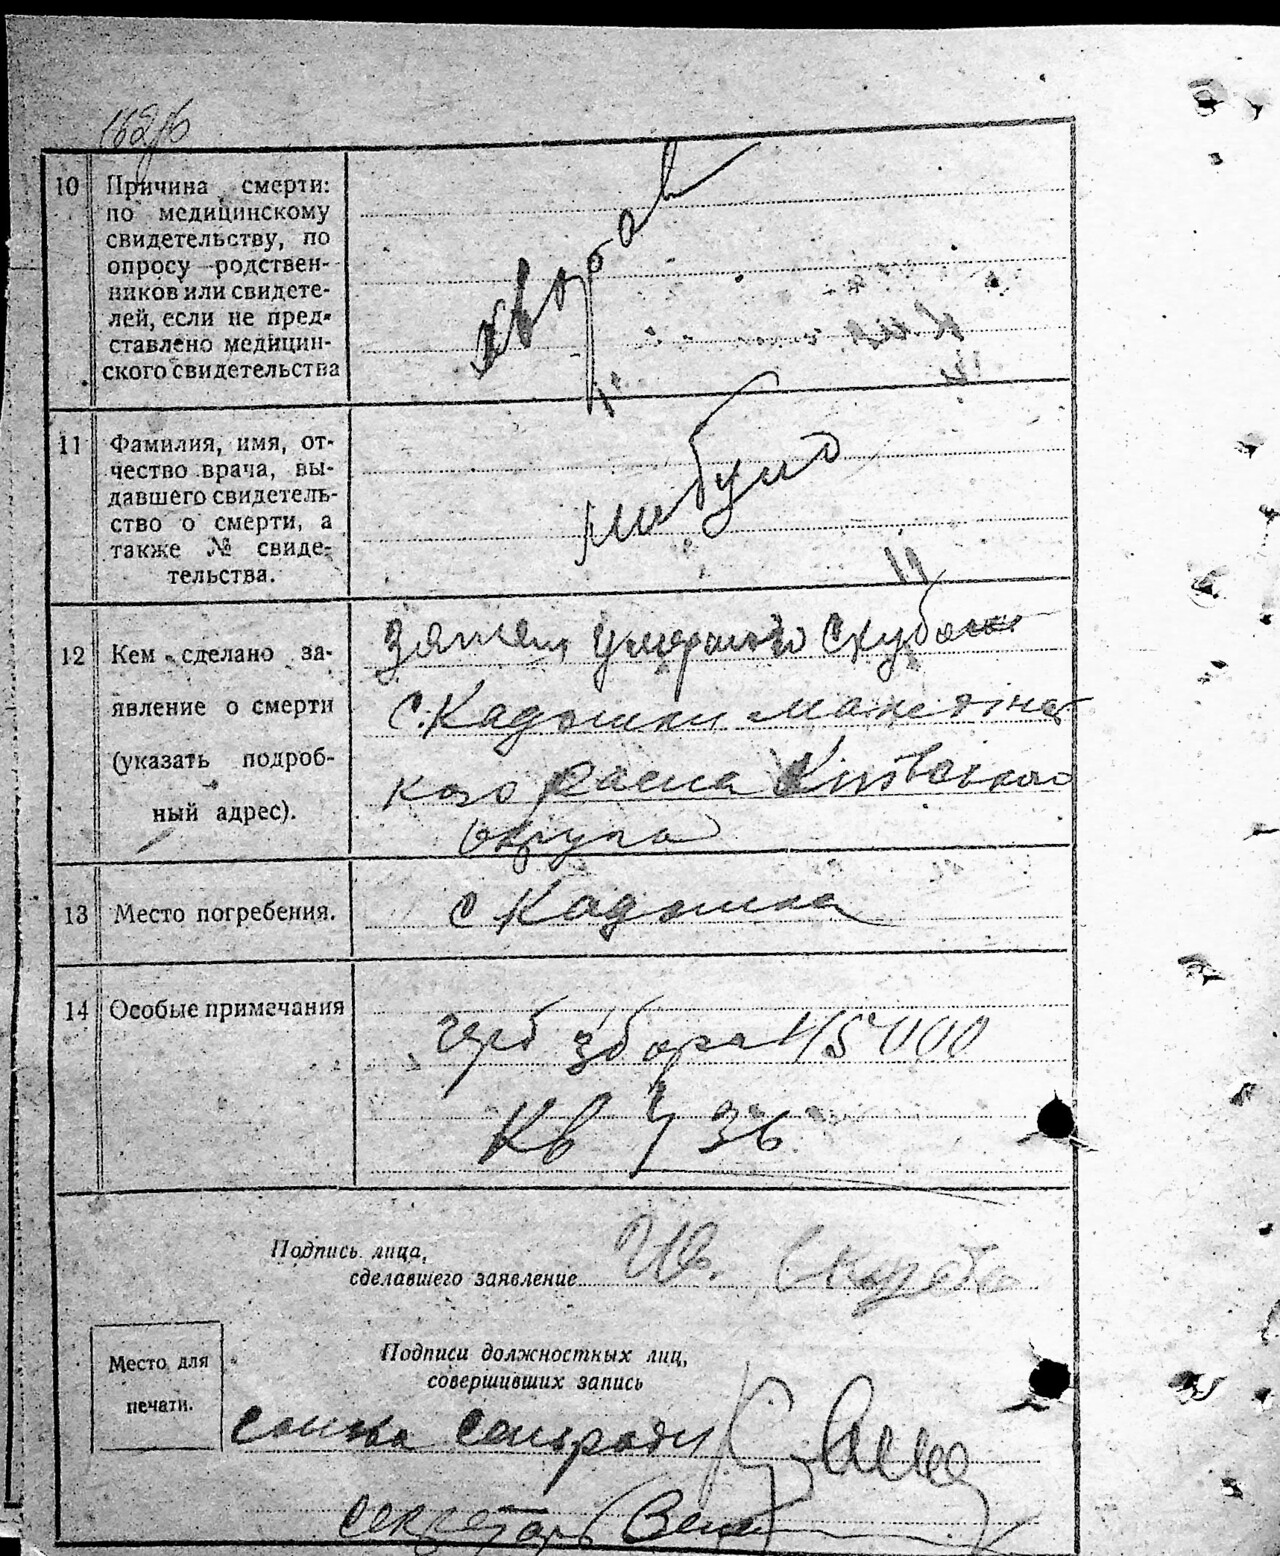 10 Причина смерти:
по медицинскому
свидетельству, по
опросу родствен-
ников или свидете-
лей, если не пред-
ставлено медицин-
ского свидетельства
хворав
11 Фамилия, имя, от-
чество врача, вы-
давшего свидетель-
ство о смерти, а
также № свиде-
тельства.
не було
12 Кем сделано за-
явление о смерти
(указать подроб-
ный адрес).
Зятем умершого Скуба
с. Кадомки
кого раена Київського
округа
13 Место погребения.
с Кадомка
14 Особые примечания
герб збора 45000
Кв 436
Подпись лица,
сделавшего заявление Ив. Скуба
Место для
печати.
Подписи должностных лиц,
совершивших запись
голова сельради
секретарь